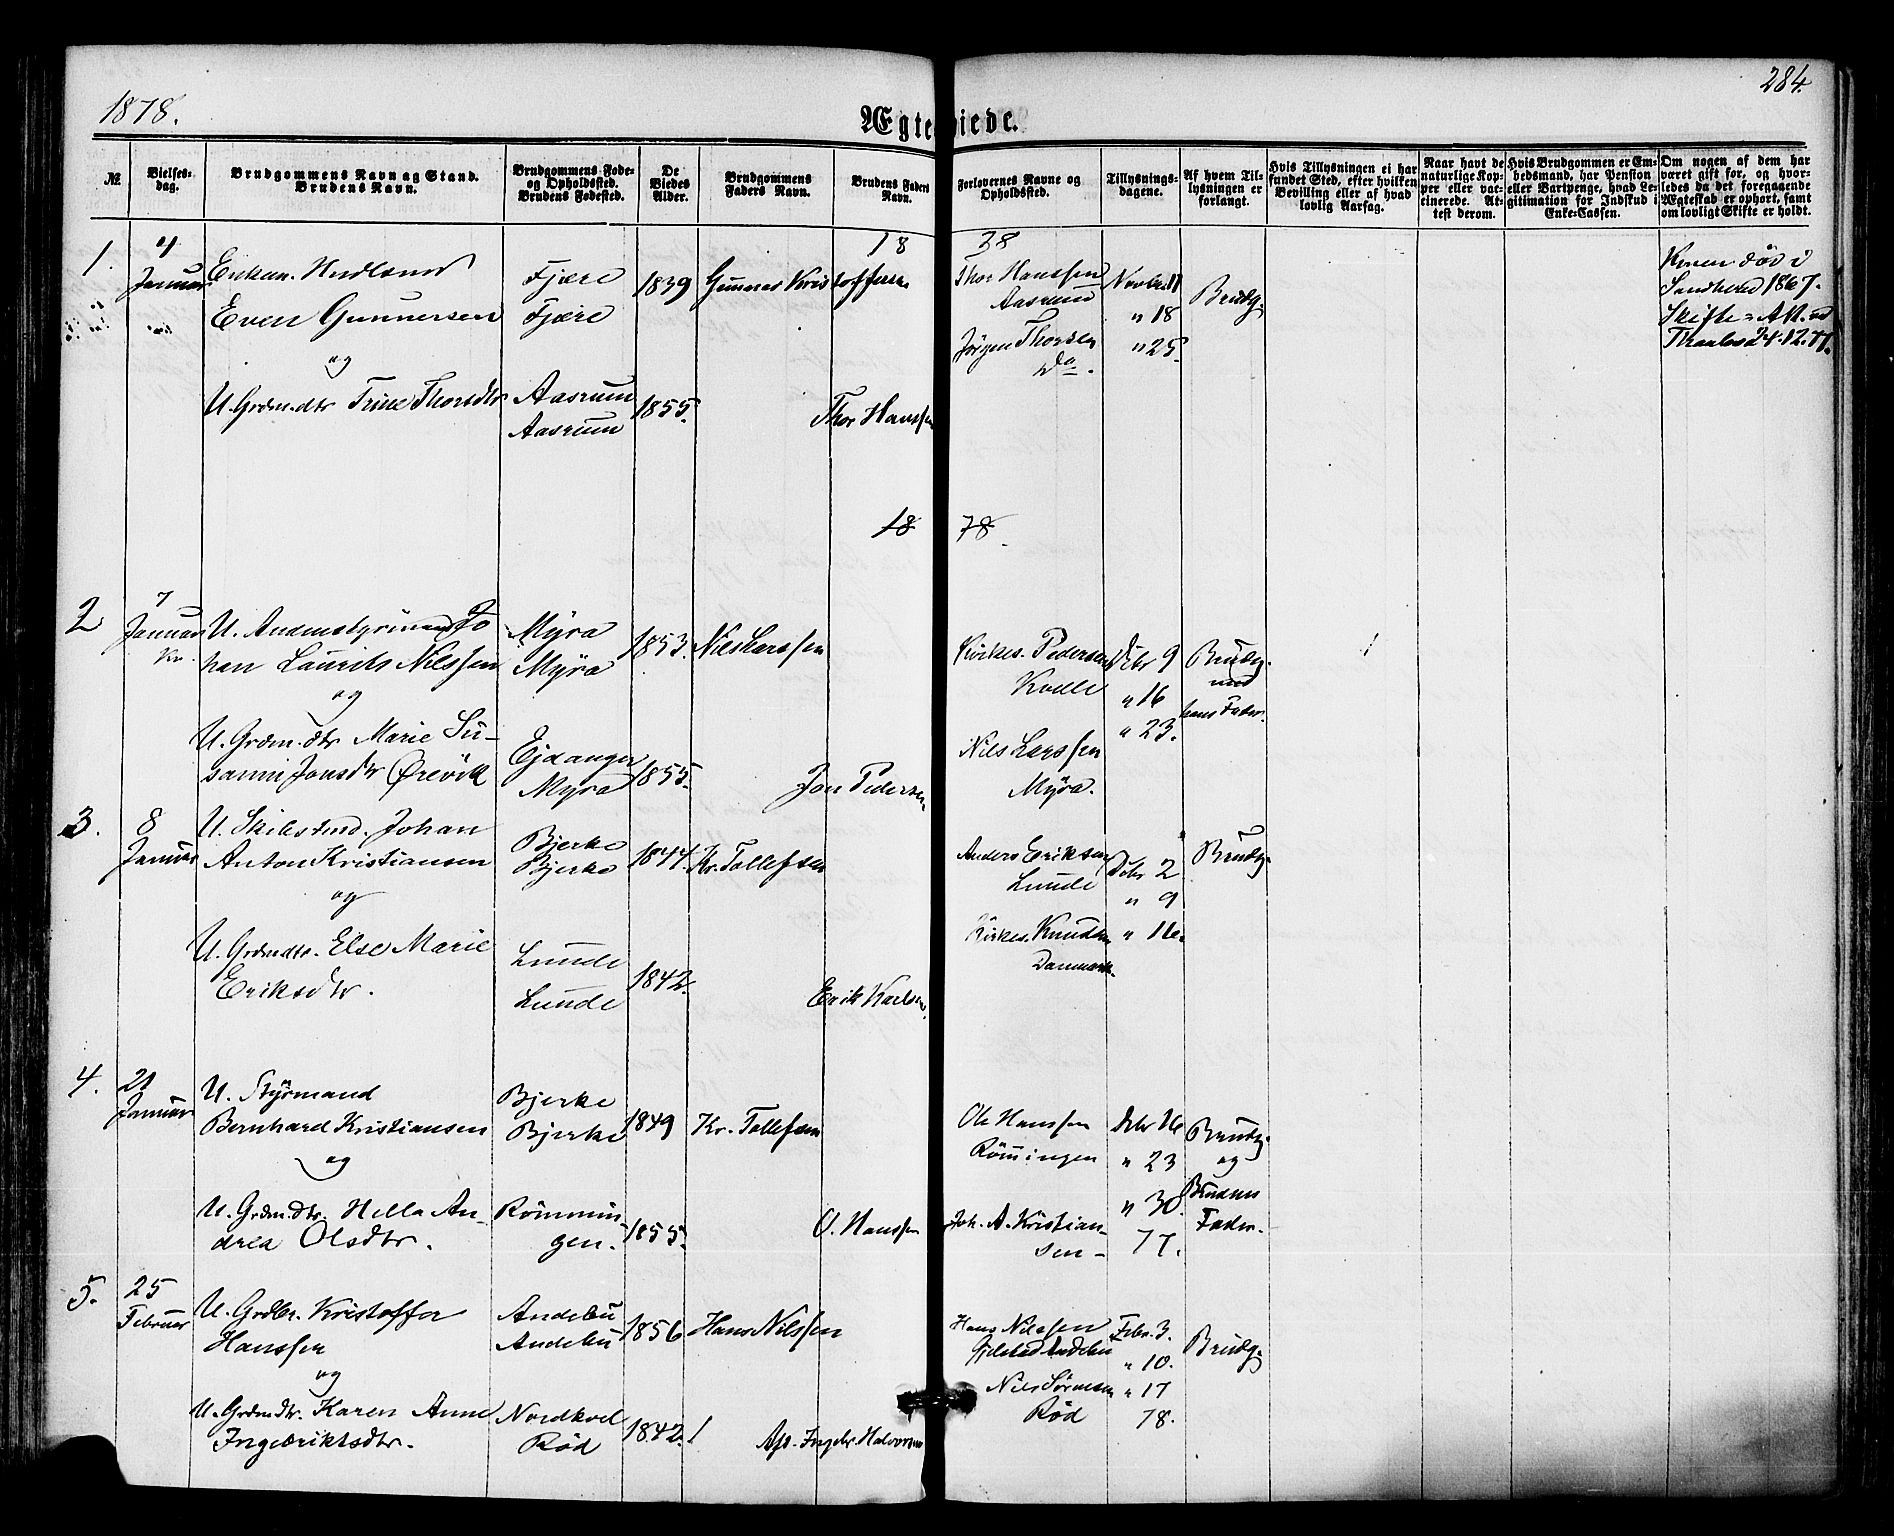 1878.
284.
Ægteviede.
№.
Vielses-
dag.
Brudgommens Navn og Stand.
Brudens Navn.
Brudgommens Føde-
og Opholdssted.
Brudens Fødested.
De
Viedes
Alder.
Brudgommens
Faders Navn.
Brudens Faders
Navn.
Forlovernes Navne og
Opholdssted.
Tillysnings-
dagene.
Af hvem Til-
lysningen er
forlangt.
Hvis Tillysningen ei har
fundet Sted, efter hvilken
Bevilling eller af hvad
lovlig Aarsag.
Naar havt de
naturlige Kop-
per eller vac-
cinerede. At-
test derom.
Hvis Brudgommen er Em-
bedsmand, har Pension
eller Vartpenge, hvad Le-
gitimation for Indskud i
Enke-Cassen.
Om nogen af dem har
været gift før, og hvor-
ledes da det foregaaende
Ægteskab er ophørt, samt
om lovligt Skifte er holdt.
18 38
1. 4
Januar
Enkem.
Even Gunnersen
og
U. Grdm.dtr Trine Thorsdtr
Fjære
Fjære
Aasrum
Aasrum
1839
1855.
Gunner Kristoffersen
Thor Hanssen
Thor Hanssen
Aasrum
Jörgen Thorsen
Do.
Novbr. 11
" 18
" 25.
Brudg.
Konen död i
Sandherred 1867.
Skifte = Att. ved
24.12.77.
18 78.
2 7
Januar
U. Andenstyrmand Jo
han Laurits Nilssen
og
U. Grdm.dtr Marie Su-
sanni Jonsdtr Ørevik
Myra
Myra
Ejdanger
Myra
1853.
1855.
Nils Larssen
Jon Pedersen
Kirkes. Pedersen
Kvelle
Nils Larssen
Myra.
Debr 9
" 16
" 23.
Brudg.
med
hans Fader.
3. 8
Januar
U. Skibstmd. Johan
Anton Kristiansen
og
U. Grdmdtr. Else Marie
Eriksdtr.
Bjerke
Bjerke
Lunde
Lunde
1844.
1842.
Kr. Tollefsen
Erik Karlsen.
Anders Eriksen
Lunde
Kirkes. Knudsen
Danmark.
Debr 2
" 9
" 16.
Brudg.
4. 21
Januar
U. Styrmand
Bernhard Kristiansen
og
U. Grdm.dtr. Hella An-
drea Olsdtr.
Bjerke
Bjerke
Römmin-
gen.
1849
1855.
Kr. Tollefsen
O. Hanssen
Ole Hanssen
Römmingen
Joh. A. Kristian-
sen-
Debr 16
" 23
" 30.
77.
Brudg.
og
Brudens
Fader.
5. 25
Februar
U. Grdbr. Kristoffer
Hanssen
og
U. Grdmdtr. Karen Anne
Ingebriktsdtr.
Andebu
Andebu
Nordkvel
Röd
1856
1842.
Hans Nilssen
Afd. Ingebr. Halvorsen
Hans Nilssen
Gjelstad Andebu
Nils Sörensen
Röd
Febr. 3.
" 10.
" 17
78.
Brudg.